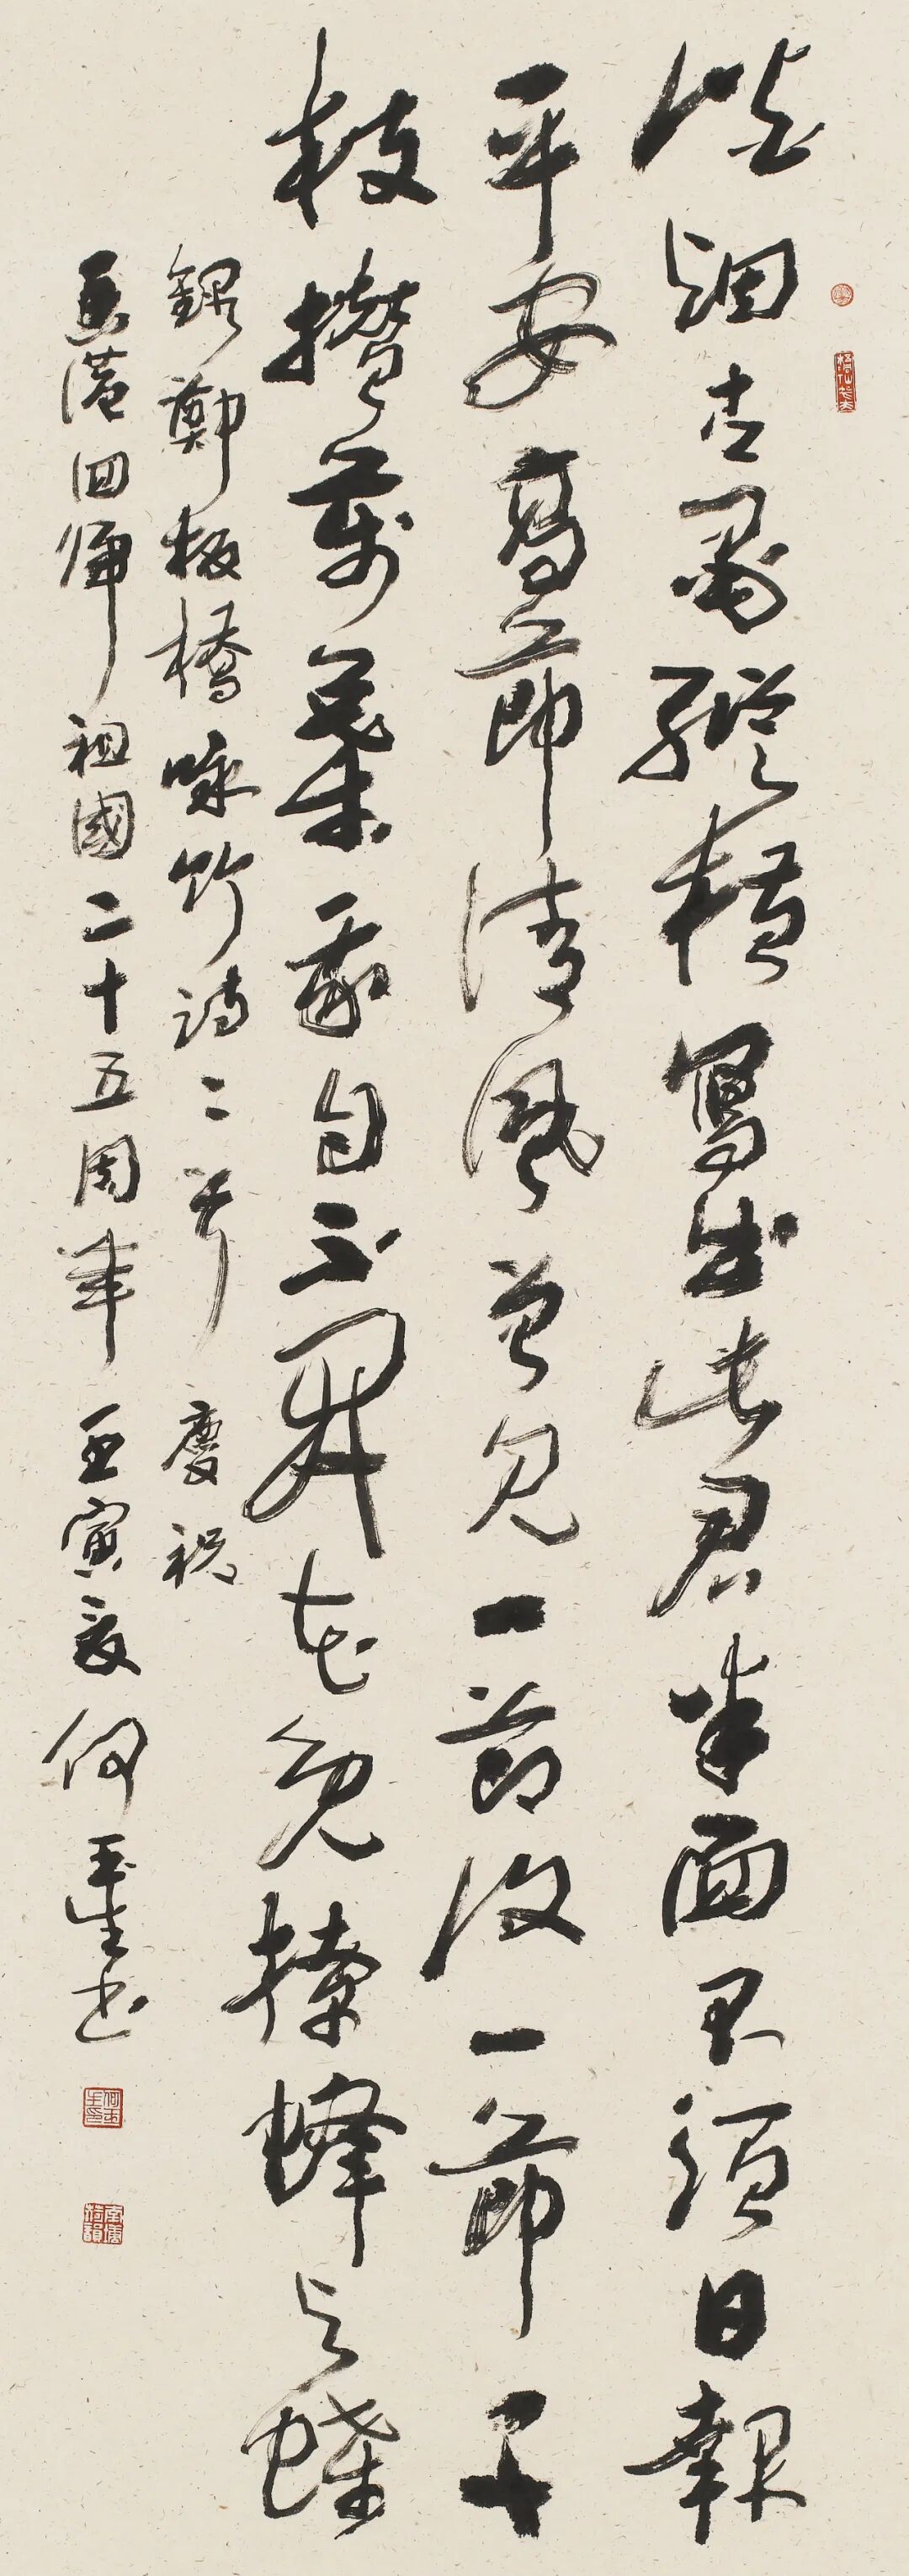 淡烟古墨縱橫寫出此君半面不須日報
平安高節清風曾見一節復一節千
枝攢萬葉我自不開花免撩蜂与蝶
錄鄭板橋咏竹詩二首 慶祝
香港回歸祖國二十五周年 壬寅夏何玉生书